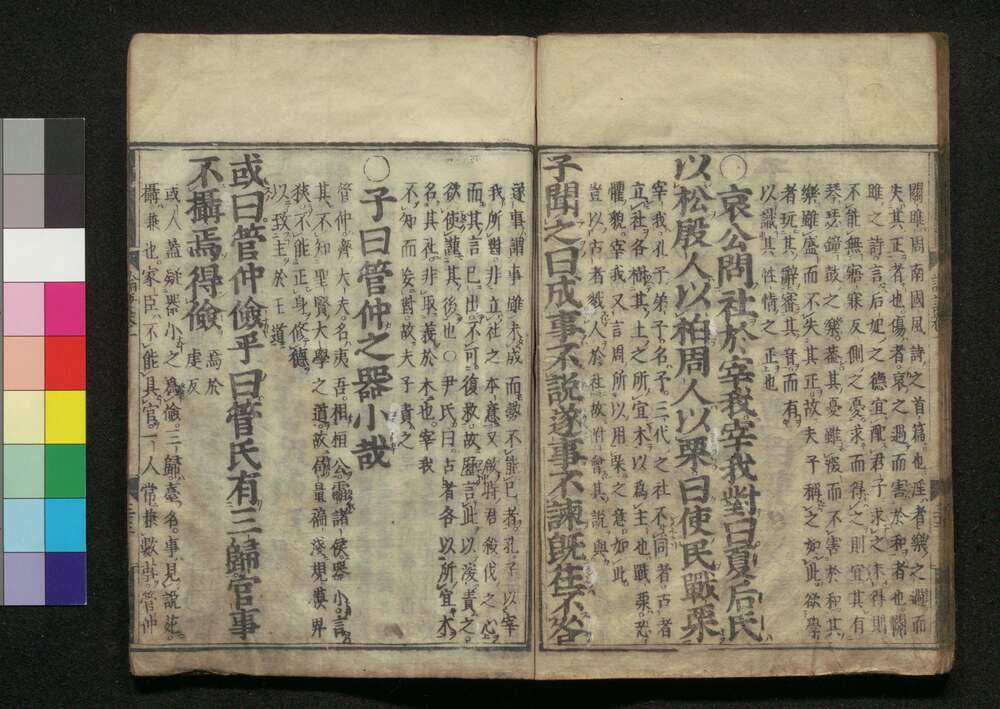 關雎周南國風詩之首篇也淫者樂之過而
失其正者也傷者哀之過而害於和者也關
雎之詩言后妃之德宜配君子求之未得則
不能無寤寐反側之憂求而得之則宜其有
琴瑟鐘鼓之樂蓋其憂雖深而不害於和其
樂雖盛而不失其正故夫子稱之如此欲學
者玩其辭審其音而有
以識其性情之正也
〇哀公問社於宰我宰我對曰夏后氏
以松殷人以柏周人以栗曰使民戰栗
宰我孔子弟子名予三代之社不同者古者
立社各樹其土之所宜木以爲主也戰栗恐
懼貌宰我又言周所以用栗之意如此
豈以古者戮人於社故附會其說與
子聞之曰成事不說遂事不諫旣往不咎
遂事謂事雖未成而勢不能已者孔子以宰
我所對非立社之本意又啟時君殺伐之心
而其言已出不可復救故歷言此以深責之
欲使謹其後也〇尹氏曰古者各以所宜木
名其社非取義於木也宰我
不知而妄對故夫子責之
〇子曰管仲之器小哉
管仲齊大夫名夷吾相桓公霸諸侯器小言
其不知聖賢大學之道故局量褊淺規模卑
狹不能正身修德
以致主於王道
或曰管仲儉乎曰管氏有三歸官事
不攝焉得儉
焉於
虔反
或人蓋疑器小之爲儉三歸臺名事見說苑
攝兼也家臣不能具官一人常兼數事管仲